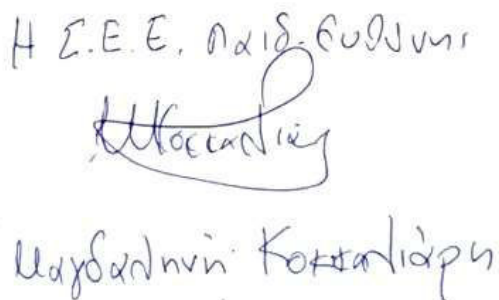 Η Σ.Ε.Ε. Παιδ. Ευθύνης
Μαγδαληνή Κοκκαλιάρη